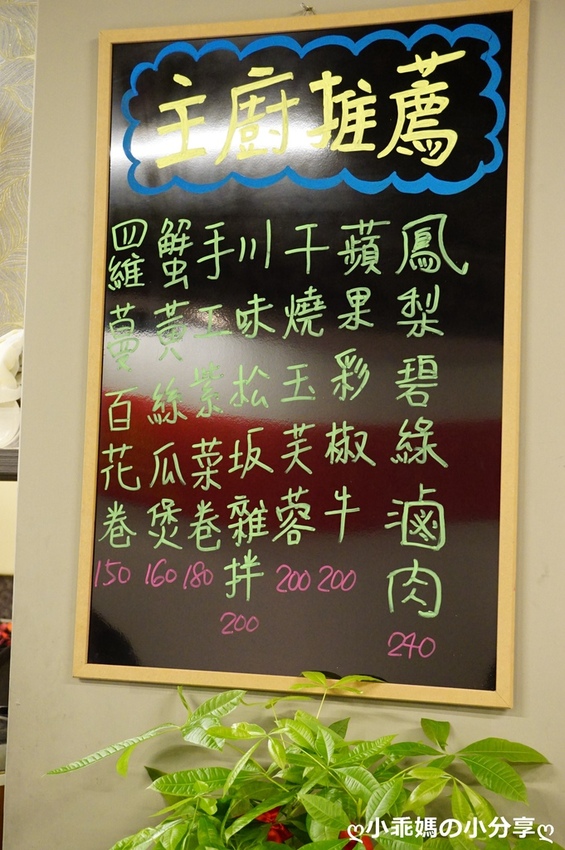 主廚推薦
鳳梨碧綠滷肉
240
蘋果彩椒牛
200
干燒玉芙蓉
200
川味松坂雜拌
200
手工紫菜卷
180
蟹黃絲瓜煲
160
羅蔓百花卷
150
ღ小乖媽の小分享ღ